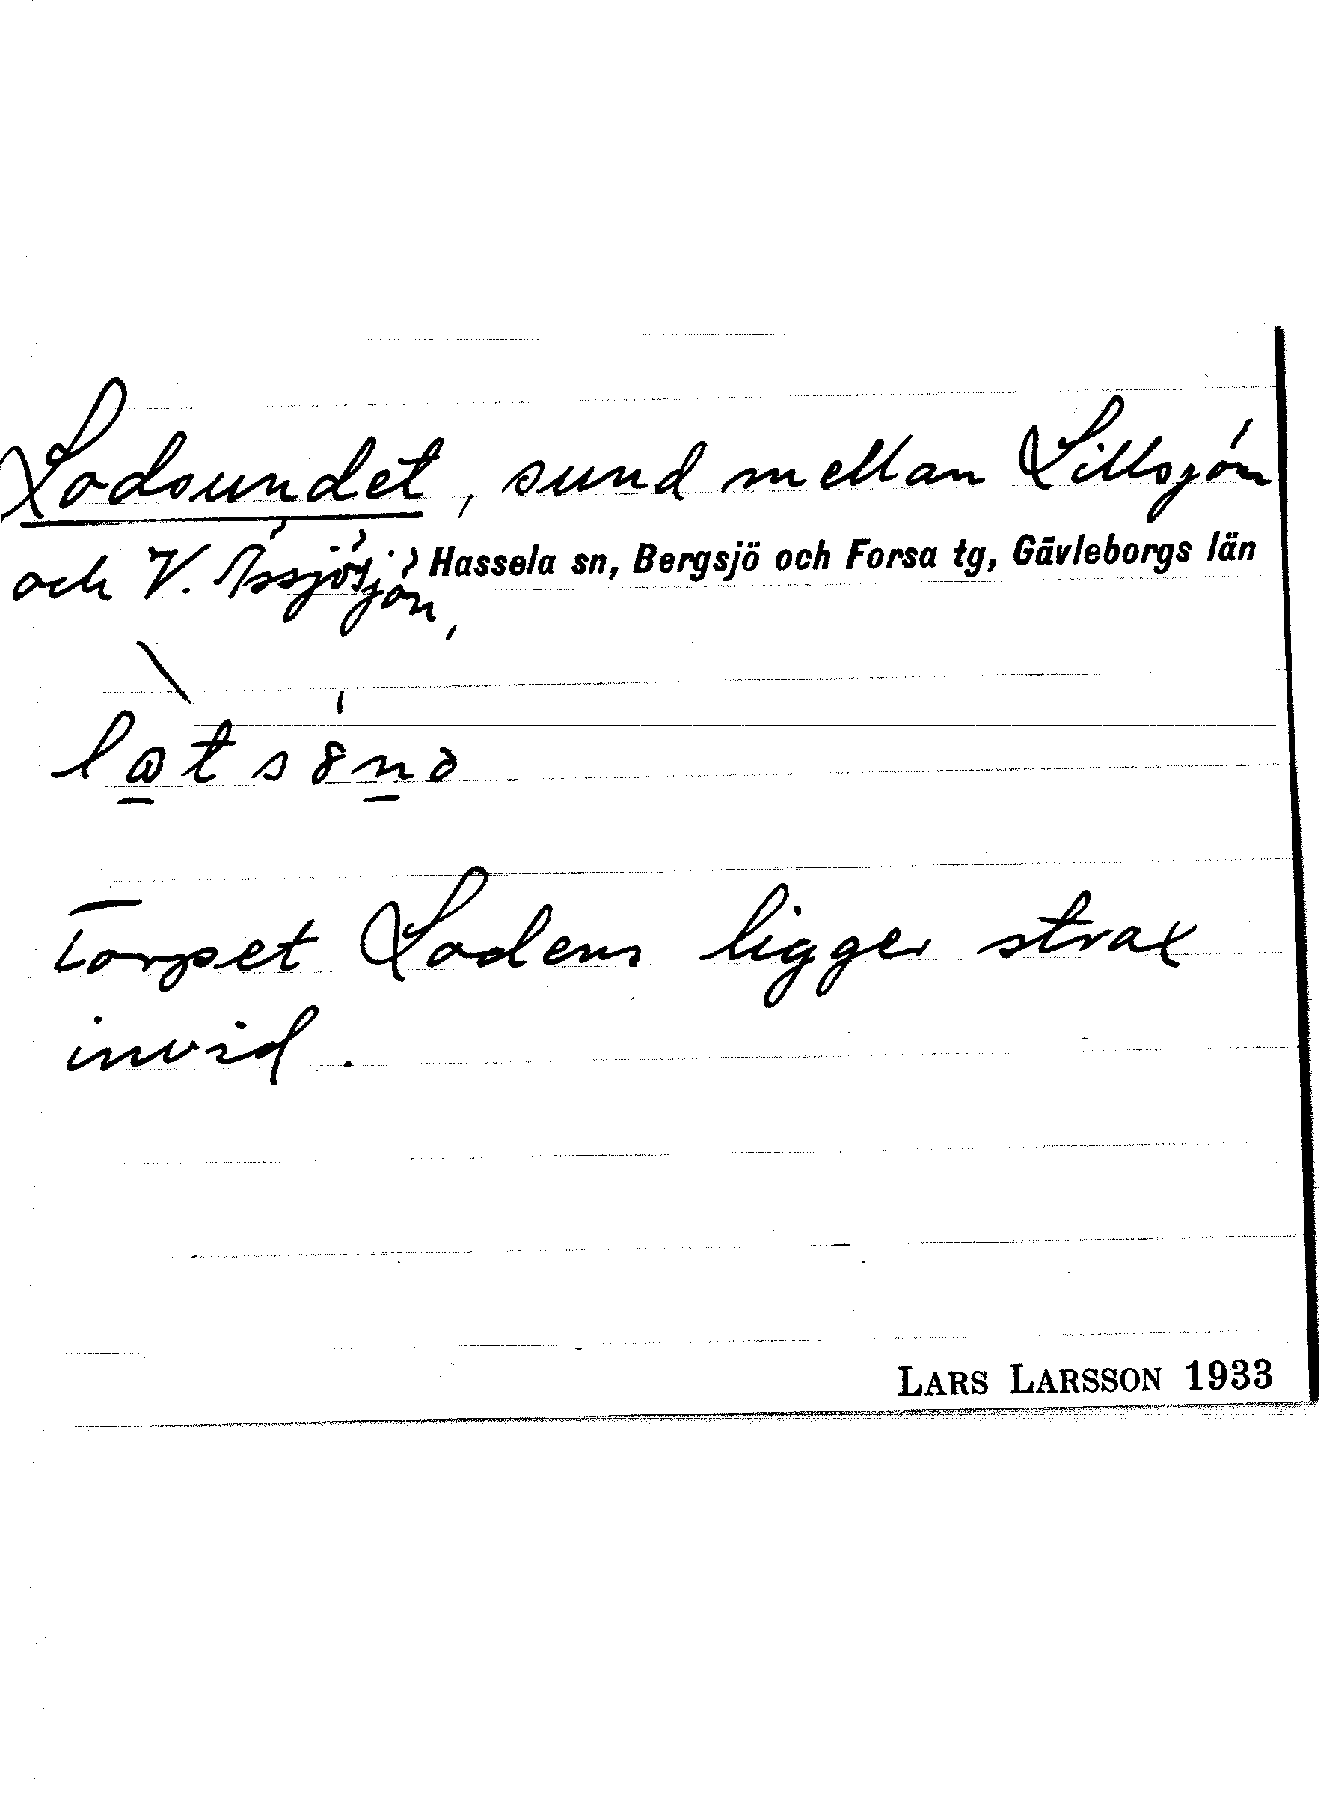 Lodsundet, sund mellan Lillsjön
och V. Ässjösjön,
Hassela sn, Bergsjö och Forsa tg, Gävleborgs län
Torpet Loden ligger strax
invid.
LARS LARSSON 1933